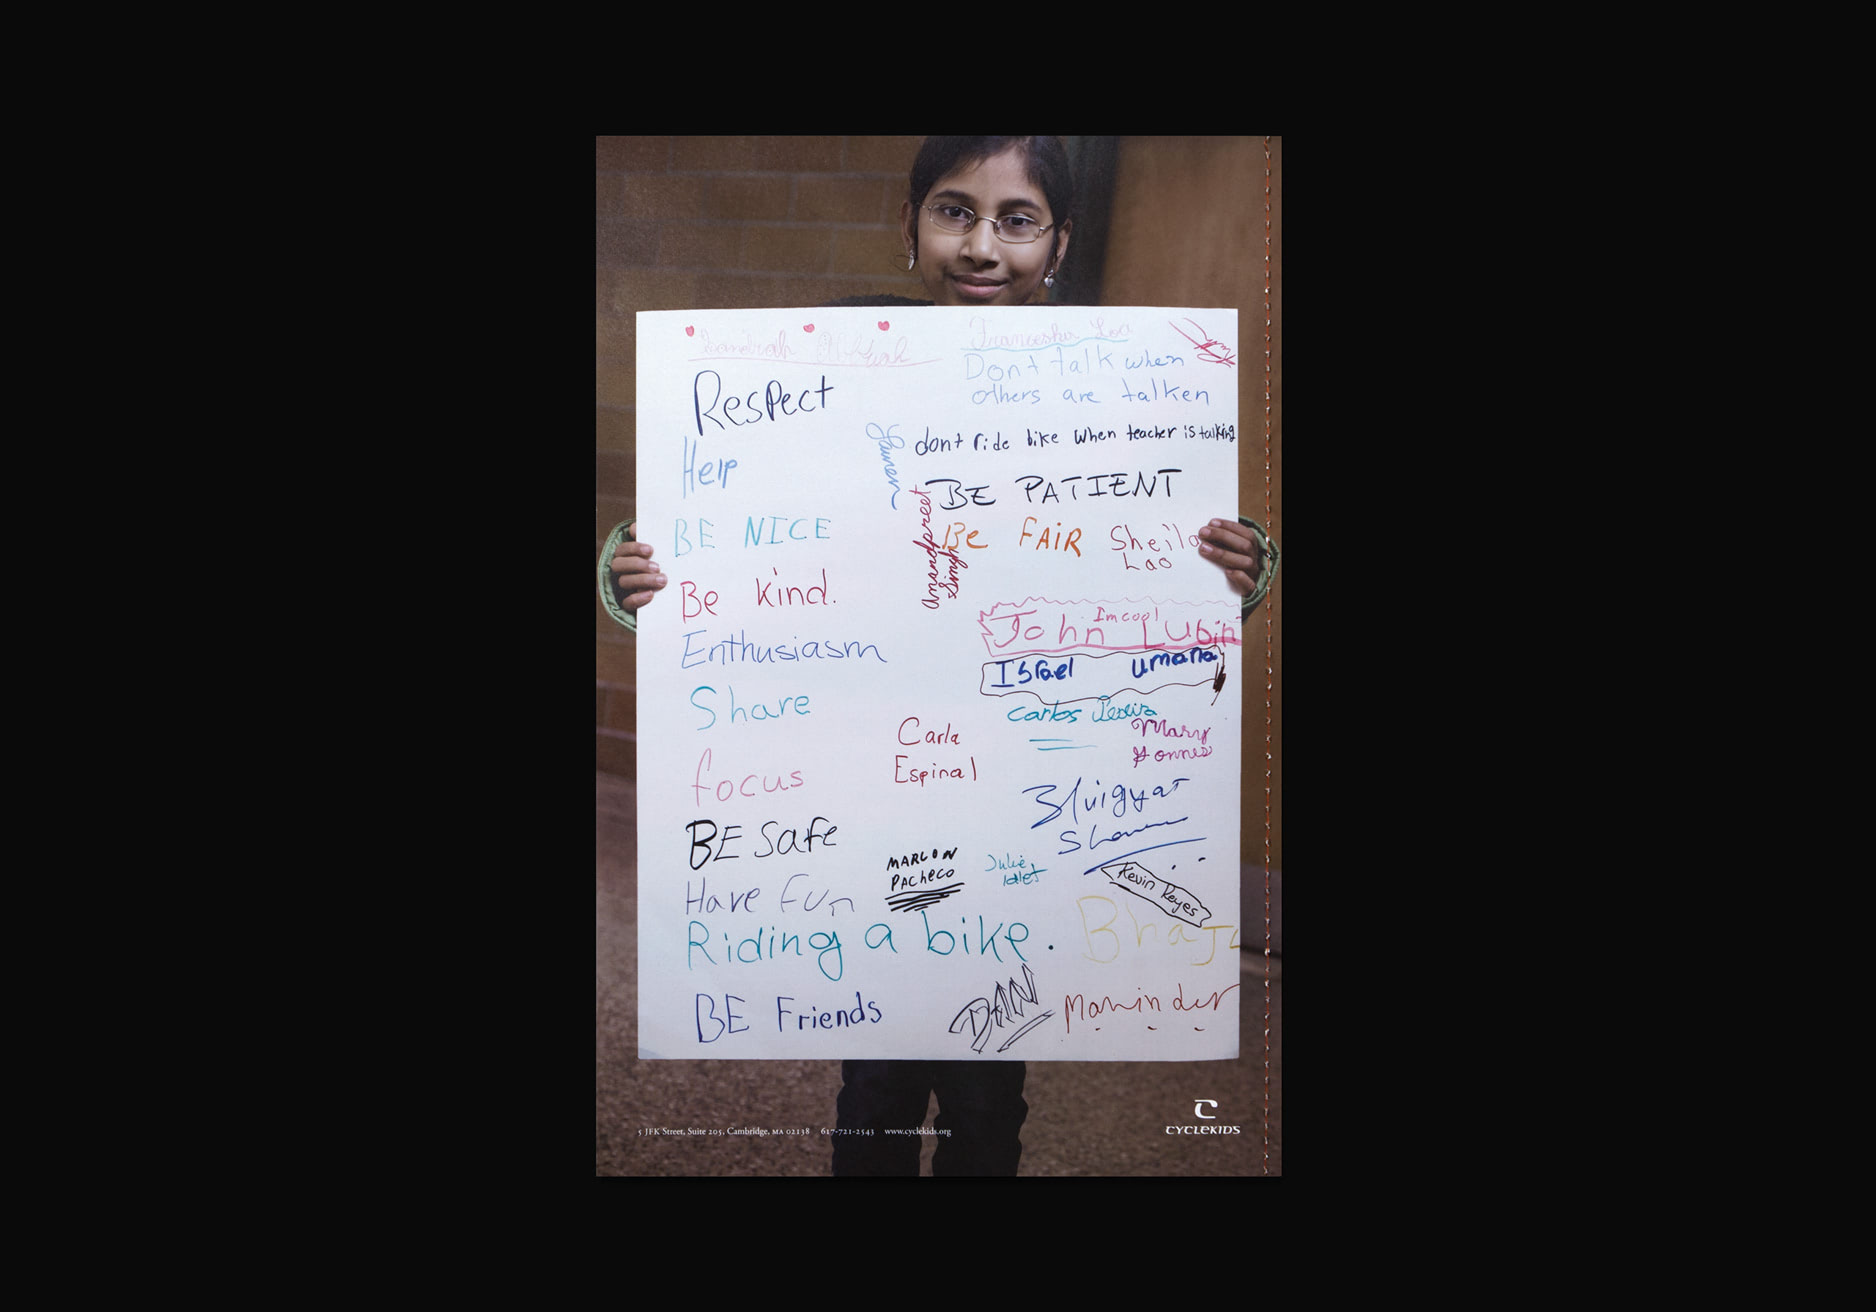 Franceska Loa
Dont talk when
others are talken
Respect
Lauren
dont ride bike when teacher is talking
Help
BE PATIENT
Anandpreet
Singh
BE NICE
Be FAIR
Sheila
Lao
Be kind.
Im cool
John Lubin
Enthusiasm
Israel Umana
Share
Carlos
Mary
Carla
Espinal
focus
BE Safe
MARLON
PACheco
Julie
Kevin Reyes
Have Fun
Riding a bike.
BE Friends
DAN
Maninder
5 JFK Street, Suite 205, Cambridge, MA 02138 617-721-2543 www.cyclekids.org
CYCLEKIDS